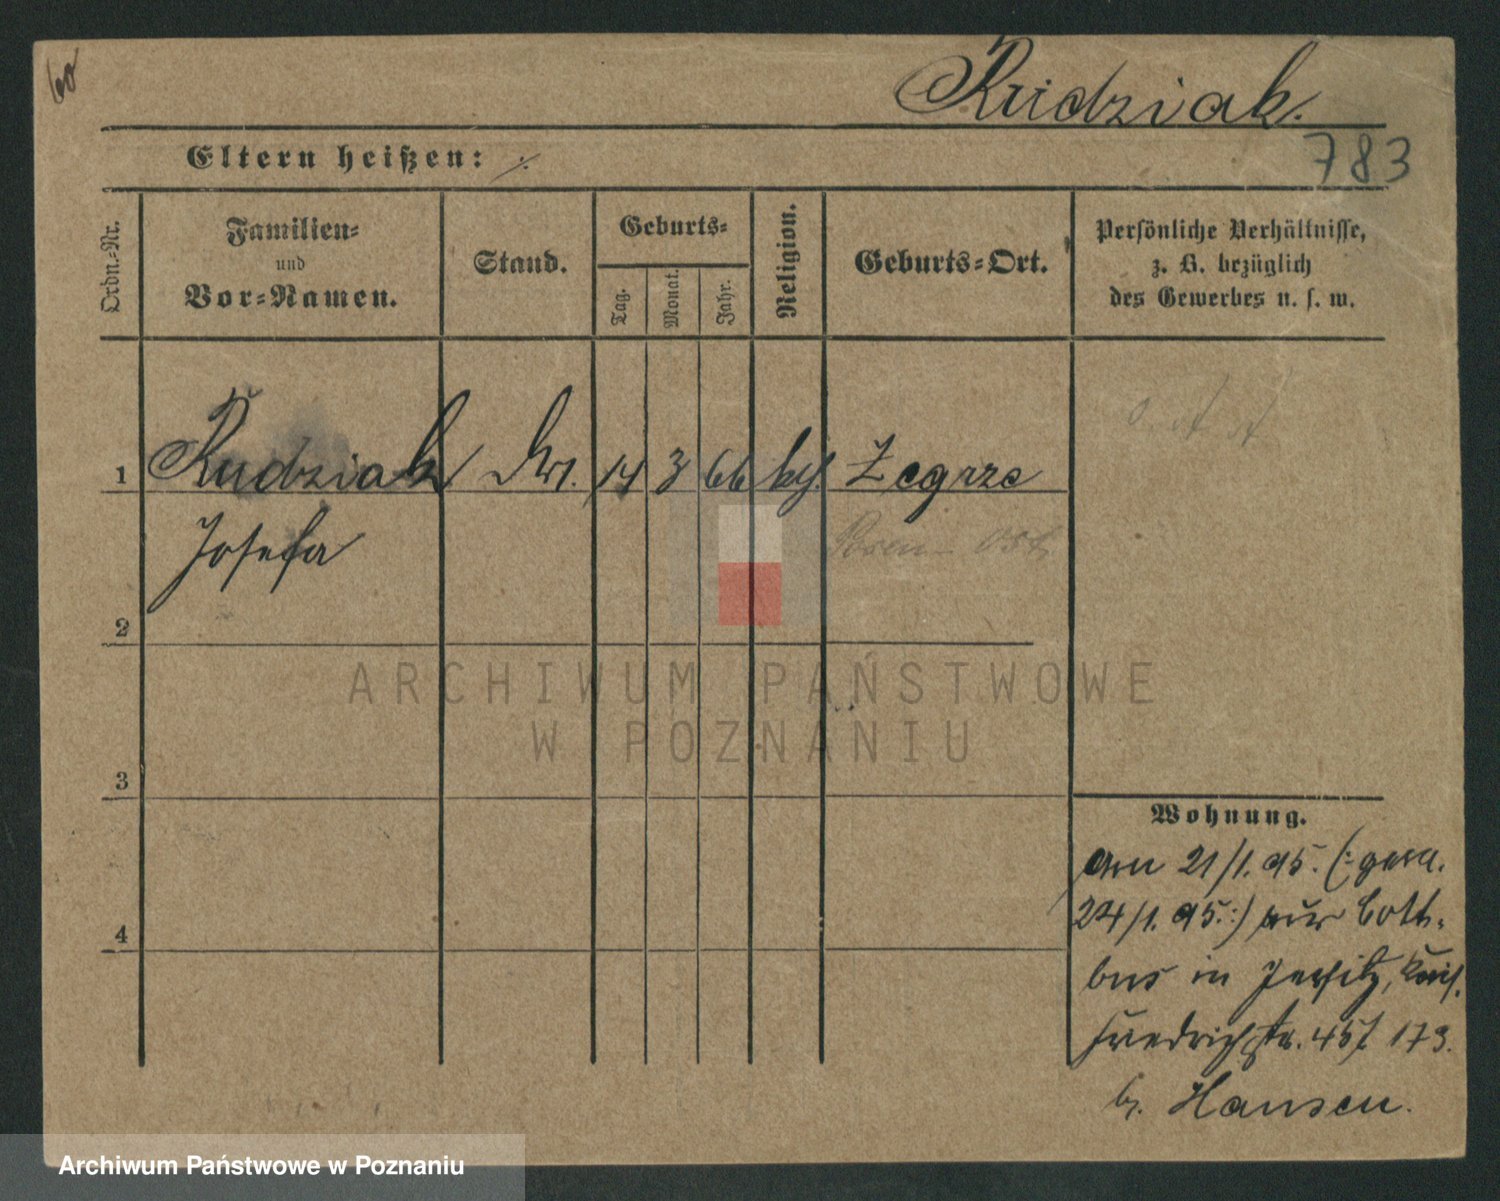 60
Rudziak.
Eltern heißen: ·/·
783
Ordn.-Nr.
Familien-
und
Vor-Namen.
Stand.
Geburts-
Tag.
Monat.
Jahr.
Religion.
Geburts-Ort.
Persönliche Verhältnisse,
z. B. bezüglich
des Gewerbes u. s. w.
1 Rudziak 14 3 66 kth. Zegrze
Josefa
Posen Ost
2
3
4
Wohnung.
am 21/1. 95. (:gem.
24/1. 95.:) aus Cott-
bus in Jersitz, Kais.
Friedrichstr. 45/ 173.
b. Hansen.
ARCHIWUM PAŃSTWOWE
W POZNANIU
Archiwum Państwowe w Poznaniu